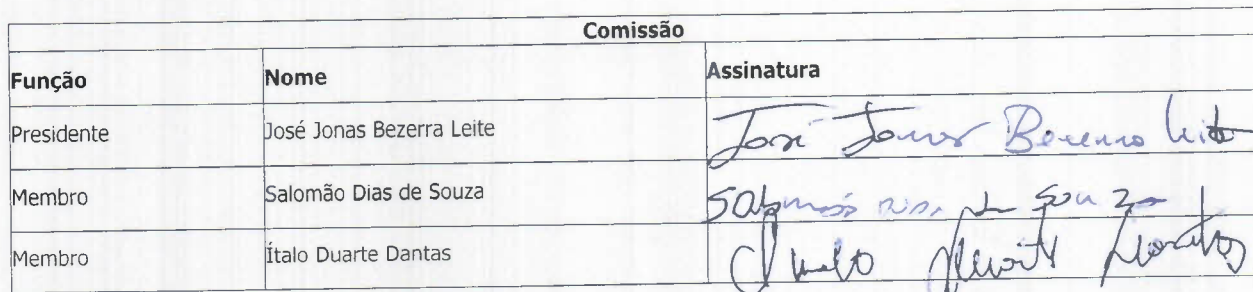 Comissão
Função Nome Assinatura
Presidente José Jonas Bezerra Leite José Jonas Bezerra Leite
Membro Salomão Dias de Souza Salomão Dias de Souza
Membro Ítalo Duarte Dantas